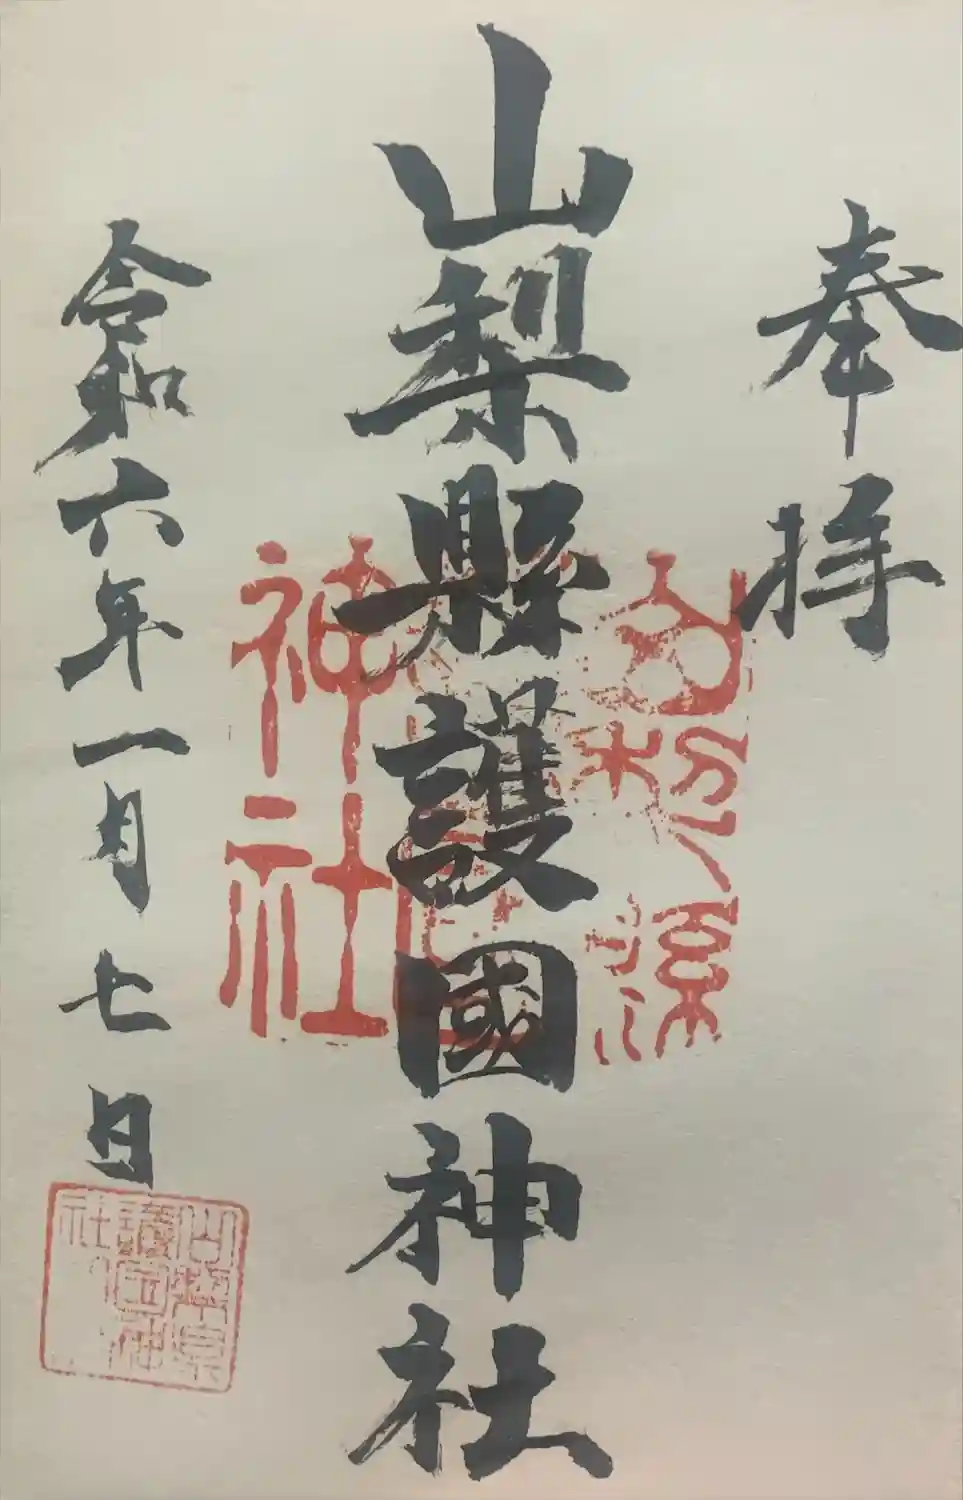 奉拝
山梨縣護國神社
令和六年一月七日
神社
山梨県
護国神
社